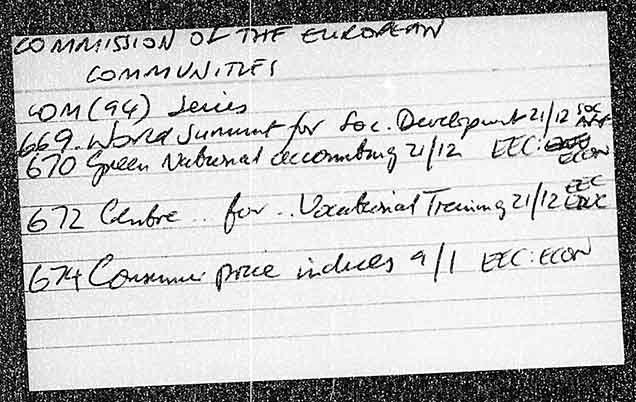 COMMISSION OF THE EUROPEAN
COMMUNITIES
COM(94) Series
669. World Summit for Soc. Development 21/12 SOC AFF
670 Green National Accounting 21/12 EEC: ECON
672 Centre .. for .. Vocational Training 21/12 EEC EDUC
674 Consumer price indices 9/1 EEC: ECON